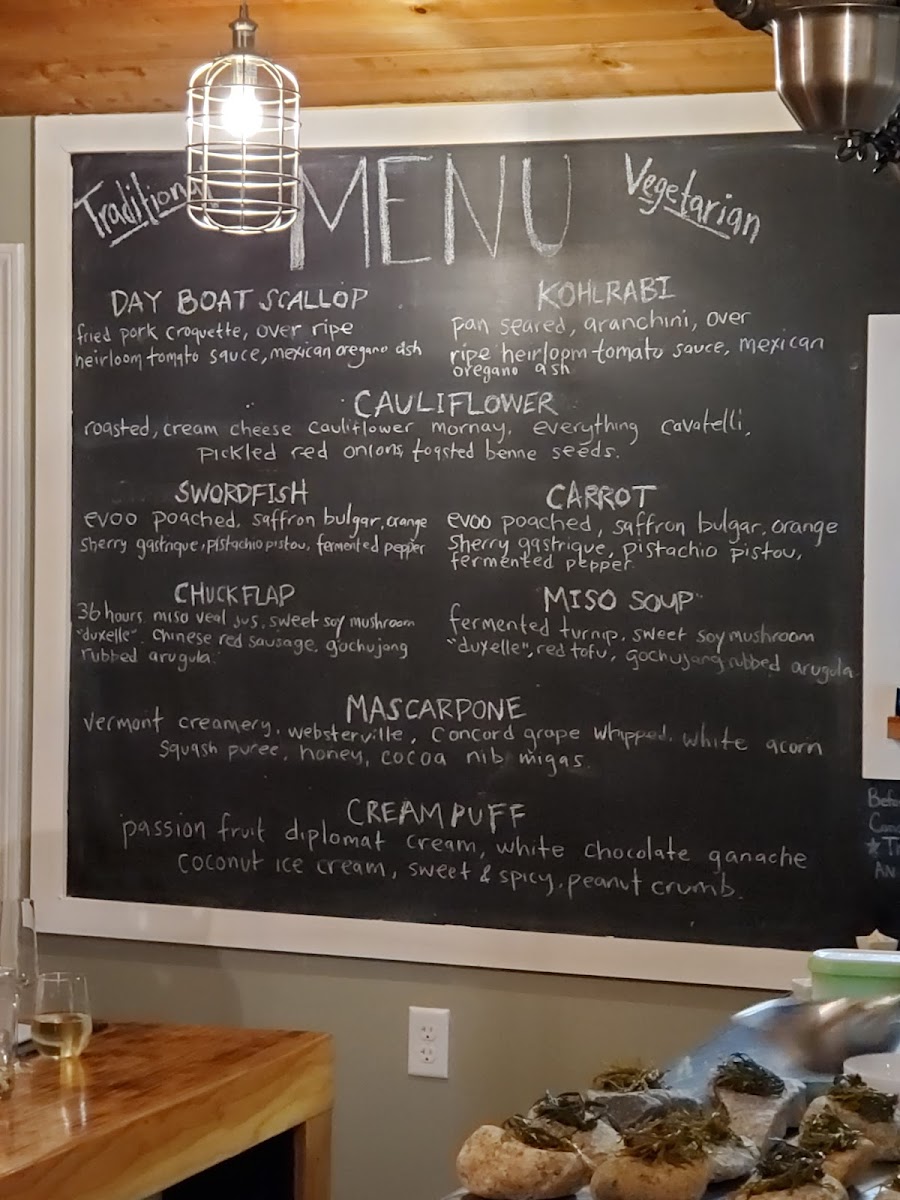 Traditional MENU Vegetarian
DAY BOAT SCALLOP
fried pork croquette, over ripe
heirloom tomato sauce, mexican oregano ash
KOHLRABI
pan seared, aranchini, over
ripe heirloom tomato sauce, mexican
oregano ash
CAULIFLOWER
roasted, cream cheese cauliflower mornay, everything cavatelli,
pickled red onions, toasted benne seeds.
SWORDFISH
evoo poached, saffron bulgar, orange
sherry gastrique, pistachio pistou, fermented pepper
CARROT
evoo poached, saffron bulgar, orange
sherry gastrique, pistachio pistou,
fermented pepper.
CHUCK FLAP
36 hours, miso veal jus, sweet soy mushroom
"duxelle", chinese red sausage, gochujang
rubbed arugula.
MISO SOUP
fermented turnip, sweet soy mushroom
"duxelle", red tofu, gochujang rubbed arugula
MASCARPONE
vermont creamery, websterville, concord grape whipped, white acorn
squash puree, honey, cocoa nib migas.
CREAM PUFF
passion fruit diplomat cream, white chocolate ganache
coconut ice cream, sweet & spicy, peanut crumb.